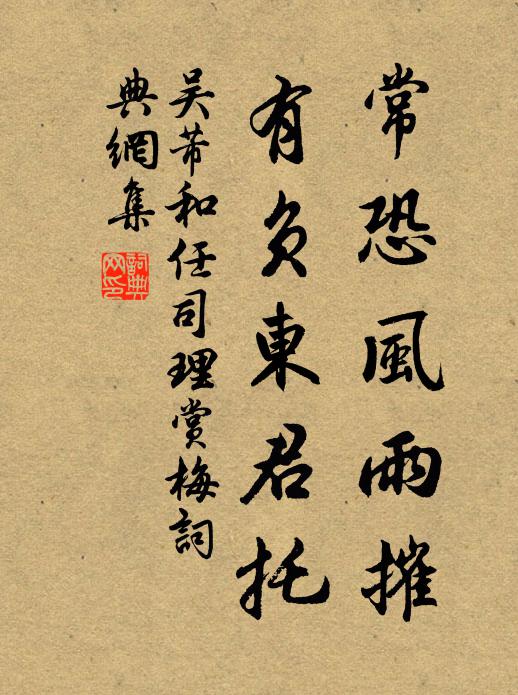 常恐風雨摧
有負東君托
吴芾和任司理賞梅詞
典網集
詞典網印